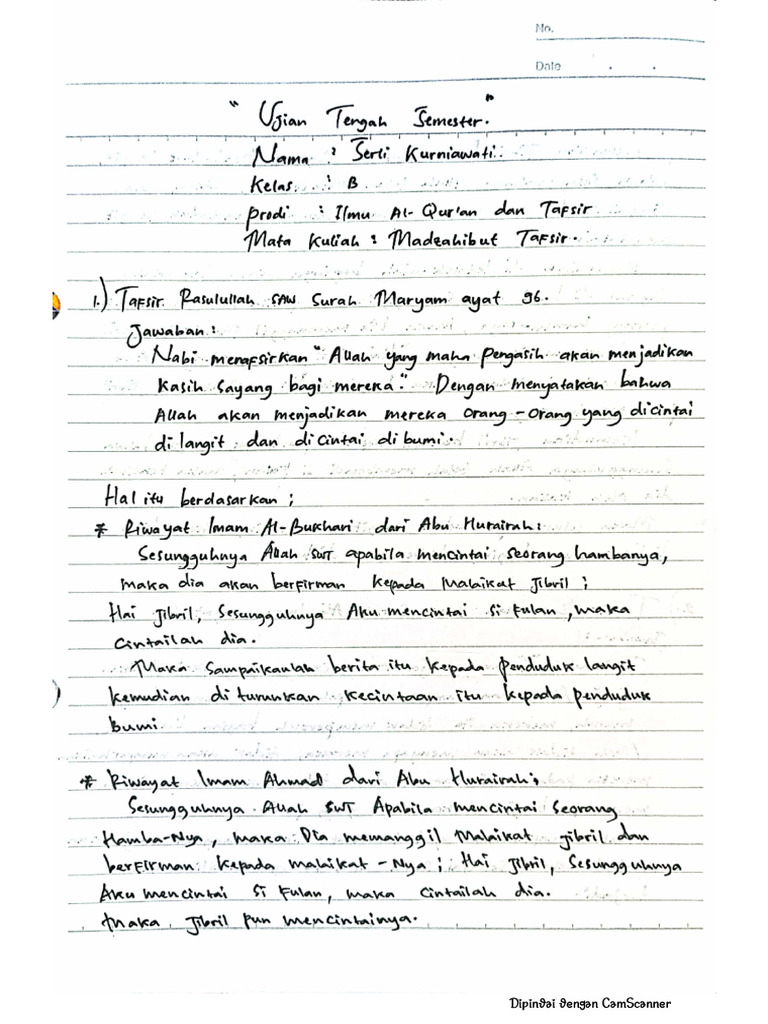 No.
Date . .
" Ujian Tengah Semester."
Nama : Serli Kurniawati.
Kelas : B
Prodi : Ilmu Al-Qur'an dan Tafsir
Mata Kuliah : Madzahibut Tafsir.
1.) Tafsir Rasulullah SAW Surah Maryam ayat 96.
Jawaban :
Nabi menafsirkan "Allah yang maha pengasih akan menjadikan
kasih sayang bagi mereka". Dengan menyatakan bahwa
Allah akan menjadikan mereka orang-orang yang dicintai
di langit dan di cintai di bumi.
Hal itu berdasarkan ;
* Riwayat Imam Al-Bukhari dari Abu Hurairah :
Sesungguhnya Allah SWT apabila mencintai seorang hambanya,
maka dia akan berfirman kepada Malaikat Jibril ;
Hai Jibril, Sesungguhnya Aku mencintai si fulan, maka
cintailah dia.
Maka sampaikanlah berita itu kepada penduduk langit
kemudian di turunkan kecintaan itu kepada penduduk
bumi.
* Riwayat Imam Ahmad dari Abu Hurairah ;
Sesungguhnya Allah SWT Apabila mencintai seorang
Hamba-Nya, maka Dia memanggil Malaikat Jibril dan
berfirman kepada malaikat-Nya ; Hai Jibril, Sesungguhnya
Aku mencintai si fulan, maka cintailah dia.
Maka Jibril pun mencintainya.
Dipindai dengan CamScanner